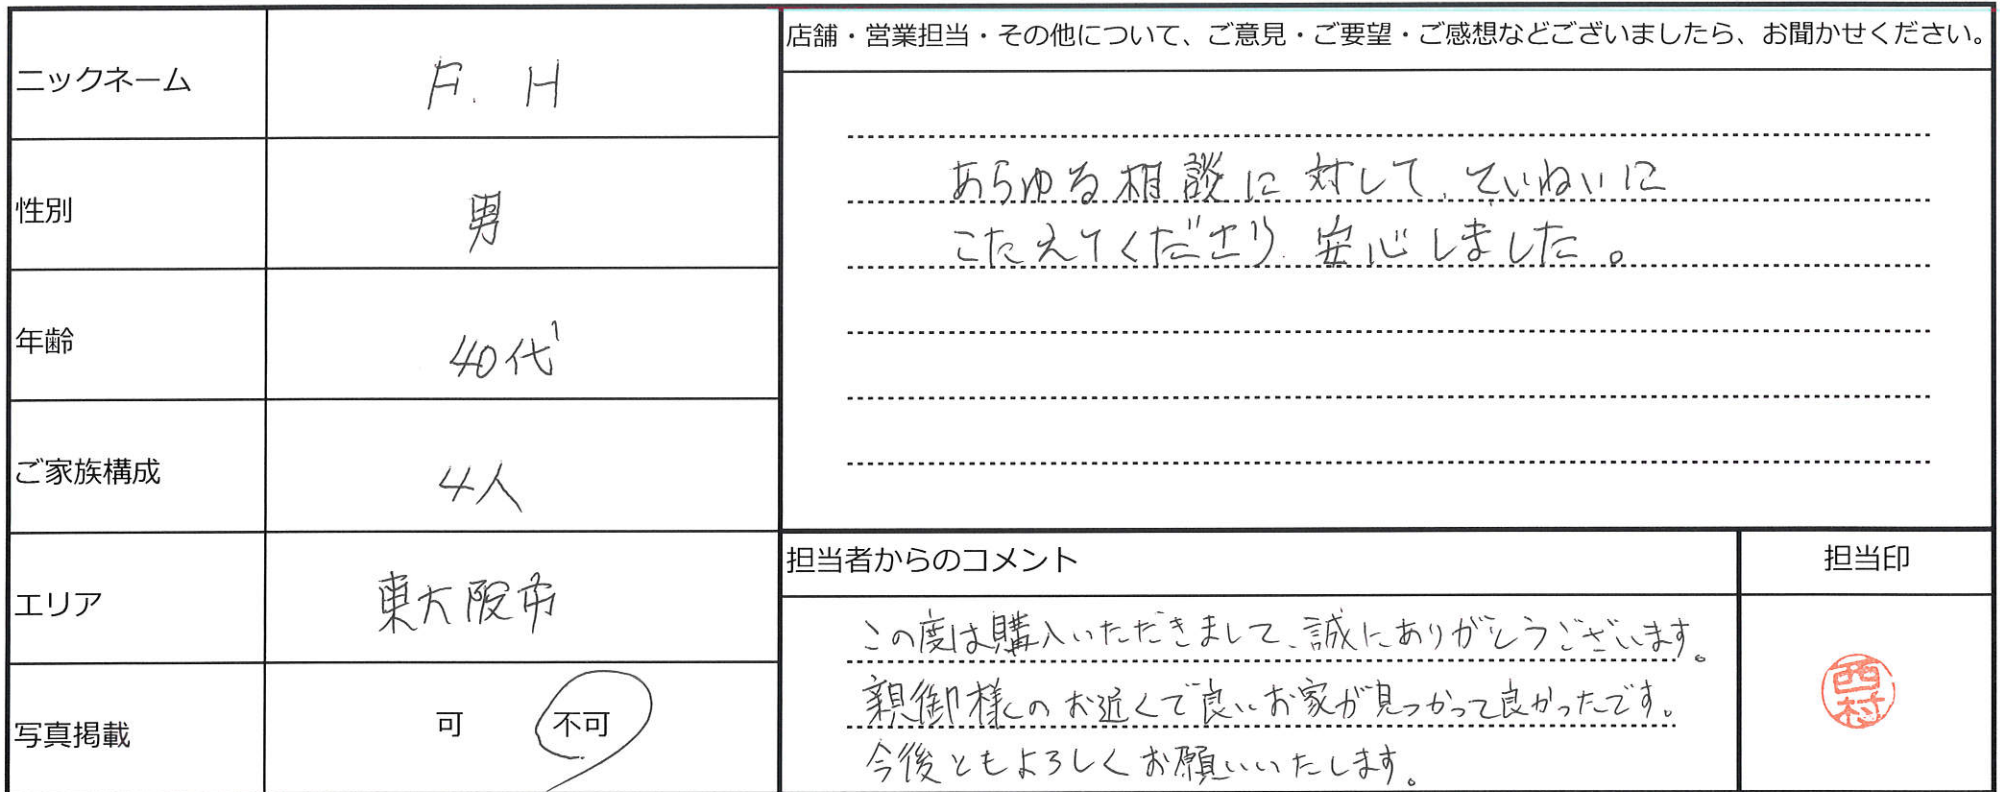 ニックネーム
F. H
性別
男
年齢
40代
ご家族構成
4人
エリア
東大阪市
写真掲載
可 不可
店舗・営業担当・その他について、ご意見・ご要望・ご感想などございましたら、お聞かせください。
あらゆる相談に対して、ていねいに
こたえてくださり、安心しました。
担当者からのコメント
この度は購入いただきまして、誠にありがとうございます。
親御様のお近くで良いお家が見つかって良かったです。
今後ともよろしくお願いいたします。
担当印
西村